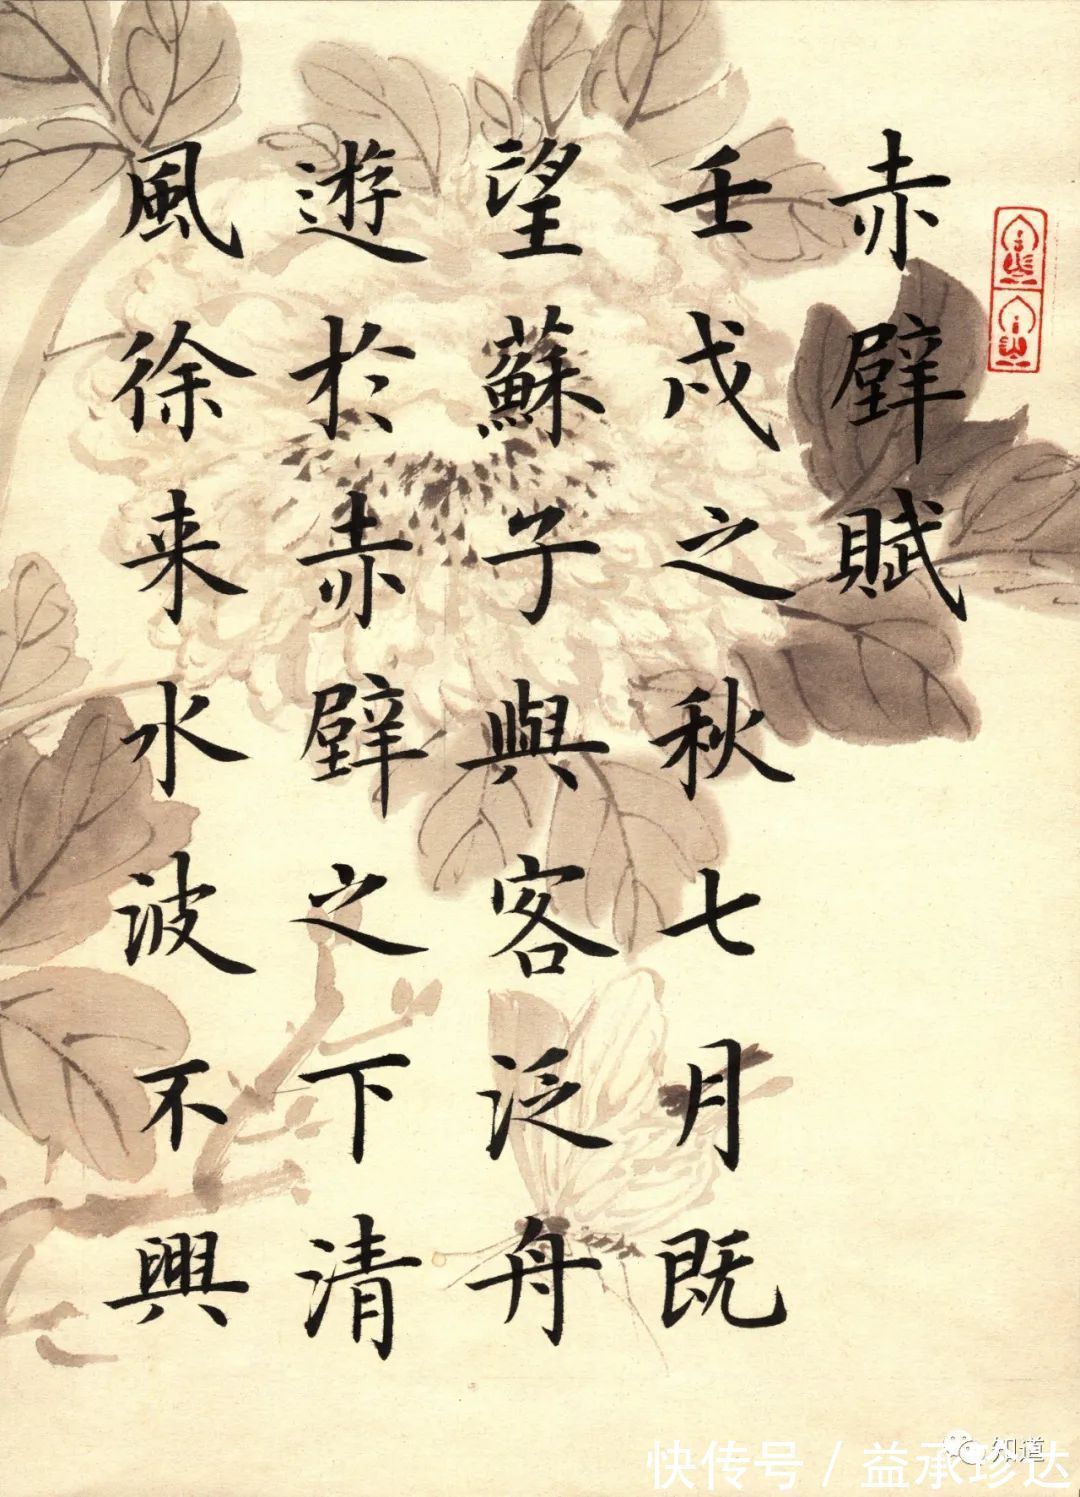 赤壁賦
壬戌之秋七月既
望蘇子與客泛舟
遊於赤壁之下清
風徐来水波不興
知道
快传号 / 益承珍达